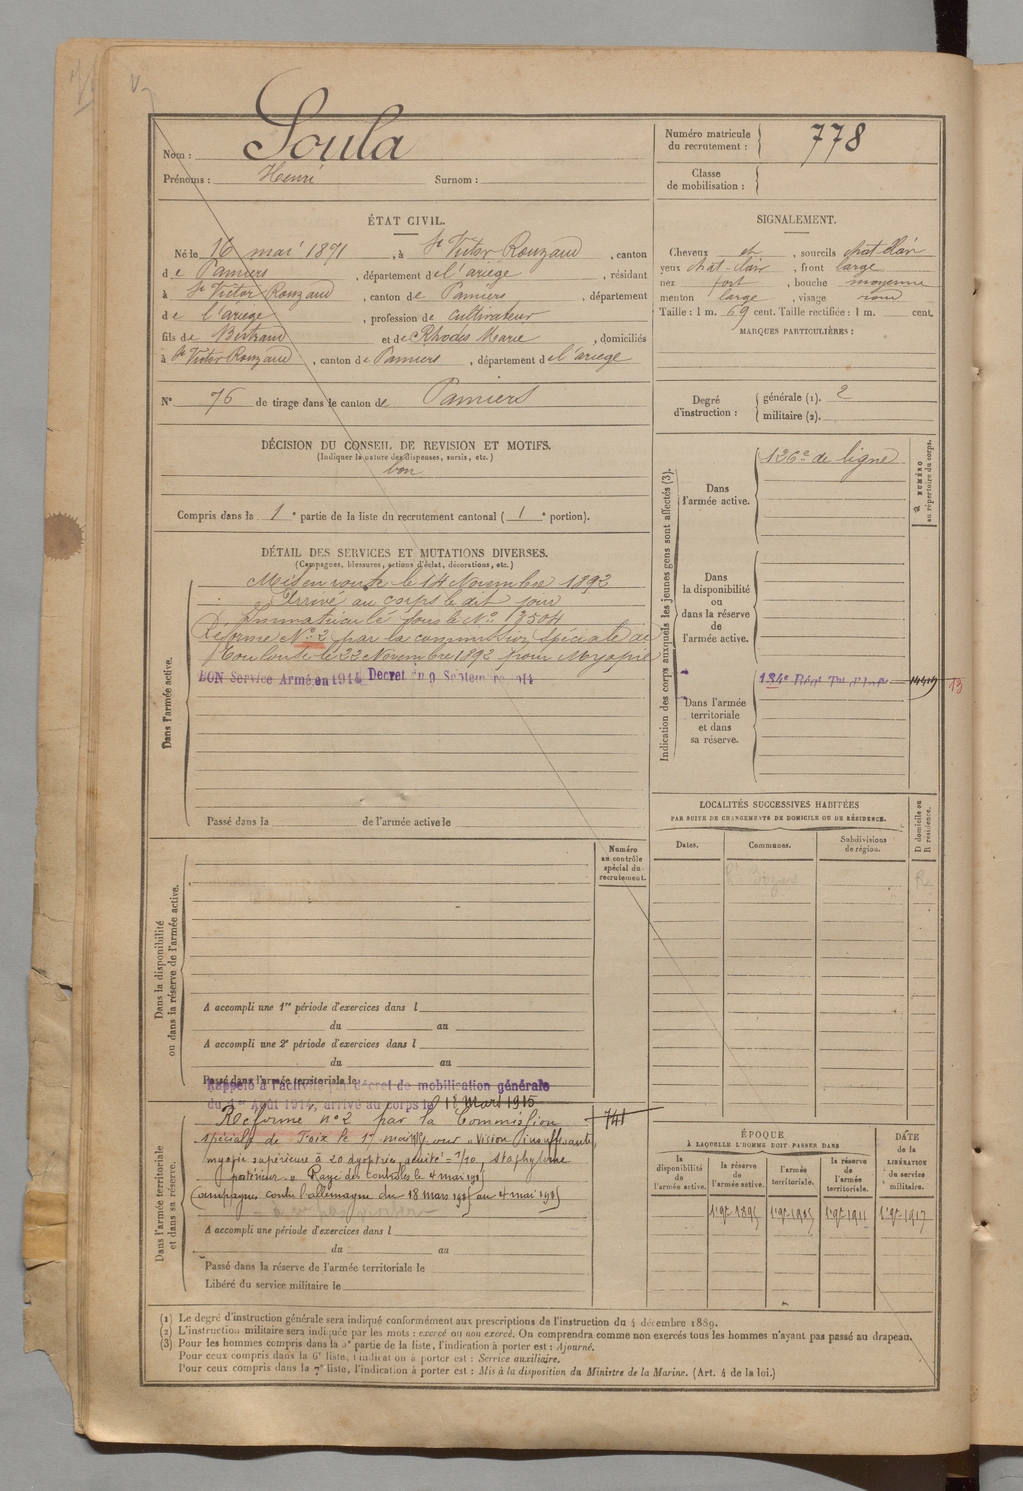 Nom : Soula
Prénoms : Henri Surnom :
Numéro matricule
du recrutement : 778
Classe
de mobilisation :
ÉTAT CIVIL.
Né le 16 mai 1871, à St Victor Rouzaud, canton
de Pamiers, département de l'ariège, résidant
à St Victor Rouzaud, canton de Pamiers, département
de l'ariège, profession de cultivateur
fils de Bertrand et de Rhodes Marie, domiciliés
à St Victor Rouzaud, canton de Pamiers, département de l'ariège
N° 76 de tirage dans le canton de Pamiers
SIGNALEMENT.
Cheveux et, sourcils chat-clair
yeux chat-clair, front large
nez fort, bouche moyenne
menton large, visage rond
Taille : 1 m. 69 cent. Taille rectifiée : 1 m. cent.
MARQUES PARTICULIÈRES :
Degré
d'instruction :
générale (1). 2
militaire (2).
DÉCISION DU CONSEIL DE REVISION ET MOTIFS.
(Indiquer la nature des dispenses, sursis, etc.)
bon
Compris dans la 1e partie de la liste du recrutement cantonal (1e portion).
DÉTAIL DES SERVICES ET MUTATIONS DIVERSES.
(Campagnes, blessures, actions d'éclat, décorations, etc.)
Dans l'armée active.
Mis en route le 14 Novembre 1892
Arrivé au corps le dit jour
Immatriculé sous le N° 13504
Réformé N° 2 par la commission spéciale de
Toulouse le 22 Novembre 1892 pour Myopie
BON Service Armé en 1914 Decret du 9 Septembre 1914
Passé dans la de l'armée active le
Indication des corps auxquels les jeunes gens sont affectés (3).
NUMÉRO
au répertoire du corps.
Dans
l'armée active.
126e de ligne
Dans
la disponibilité
ou
dans la réserve
de
l'armée active.
Dans l'armée
territoriale
et dans
sa réserve.
134e Régt Ter d'Infie 14419 13
LOCALITÉS SUCCESSIVES HABITÉES
PAR SUITE DE CHANGEMENTS DE DOMICILE OU DE RÉSIDENCE.
Dates. Communes. Subdivisions
de région.
D domicile ou
R résidence.
Numéro
au contrôle
spécial du
recrutement.
Dans la disponibilité
ou dans la réserve de l'armée active.
A accompli une 1re période d'exercices dans l
du au
A accompli une 2e période d'exercices dans l
du au
Passé dans l'armée territoriale le
Rappelé à l'activité par décret de mobilisation générale
du 1er Août 1914, arrivé au corps le 18 Mars 1915
Dans l'armée territoriale
et dans sa réserve.
Réformé n° 2 par la Commission 741
spéciale de Foix le 17 mai pour "vision insuffisante
myopie supérieure à 20 dyoptries, acuité = 1/20, staphylome
postérieur". Rayé des contrôles le 4 mai 1915
Campagne contre l'allemagne du 18 mars 1915 au 4 mai 1915
A accompli une période d'exercices dans l
du au
Passé dans la réserve de l'armée territoriale le
Libéré du service militaire le
ÉPOQUE
À LAQUELLE L'HOMME DOIT PASSER DANS
la
disponibilité
de
l'armée active.
la réserve
de
l'armée active.
l'armée
territoriale.
la réserve
de
l'armée
territoriale.
DATE
de la
LIBÉRATION
du service
militaire.
(1) Le degré d'instruction générale sera indiqué conformément aux prescriptions de l'instruction du 4 décembre 1889.
(2) L'instruction militaire sera indiquée par les mots : exercé ou non exercé. On comprendra comme non exercés tous les hommes n'ayant pas passé au drapeau.
(3) Pour les hommes compris dans la 5e partie de la liste, l'indication à porter est : Ajourné.
Pour ceux compris dans la 6e liste, l'indication à porter est : Service auxiliaire.
Pour ceux compris dans la 7e liste, l'indication à porter est : Mis à la disposition du Ministre de la Marine. (Art. 4 de la loi.)